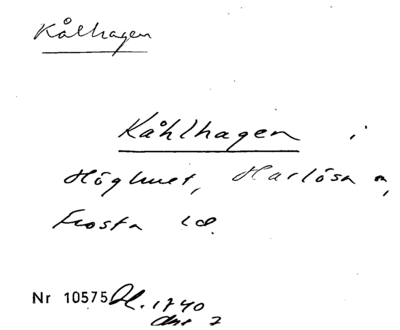 Kålhagen
Kåhlhagen i
Höghult, Harlösa
Frosta
Nr 10575 1740